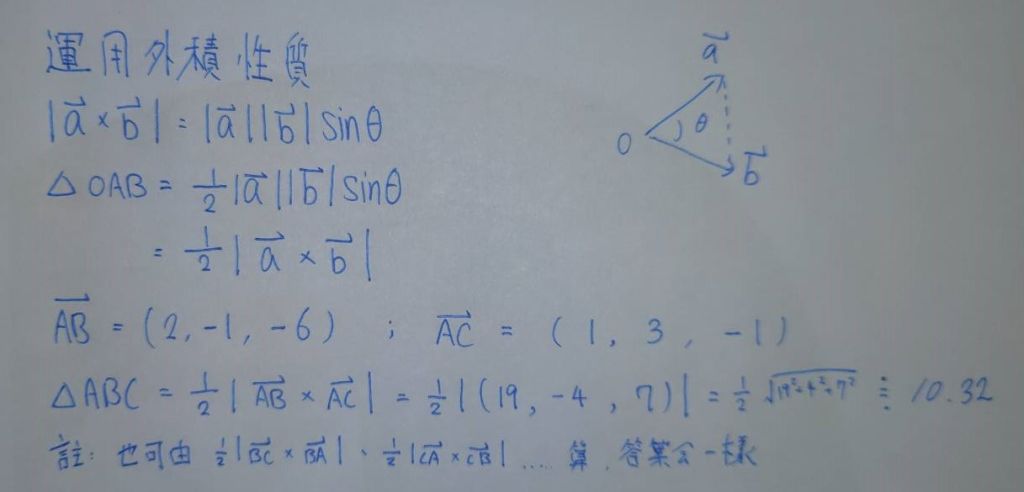 運用外積性質
|a⃗ × b⃗| = |a⃗||b⃗| sinθ
△OAB = 1/2 |a⃗||b⃗| sinθ
= 1/2 | a⃗ × b⃗ |
a⃗
O θ
b⃗
AB⃗ = (2, -1, -6) ; AC⃗ = (1, 3, -1)
△ABC = 1/2 | AB⃗ × AC⃗ | = 1/2 |(19, -4, 7)| = 1/2 √(19²+4²+7²) ≒ 10.32
註: 也可由 1/2 |BC⃗ × BA⃗|、1/2 |CA⃗ × CB⃗| ..... 算, 答案会一樣